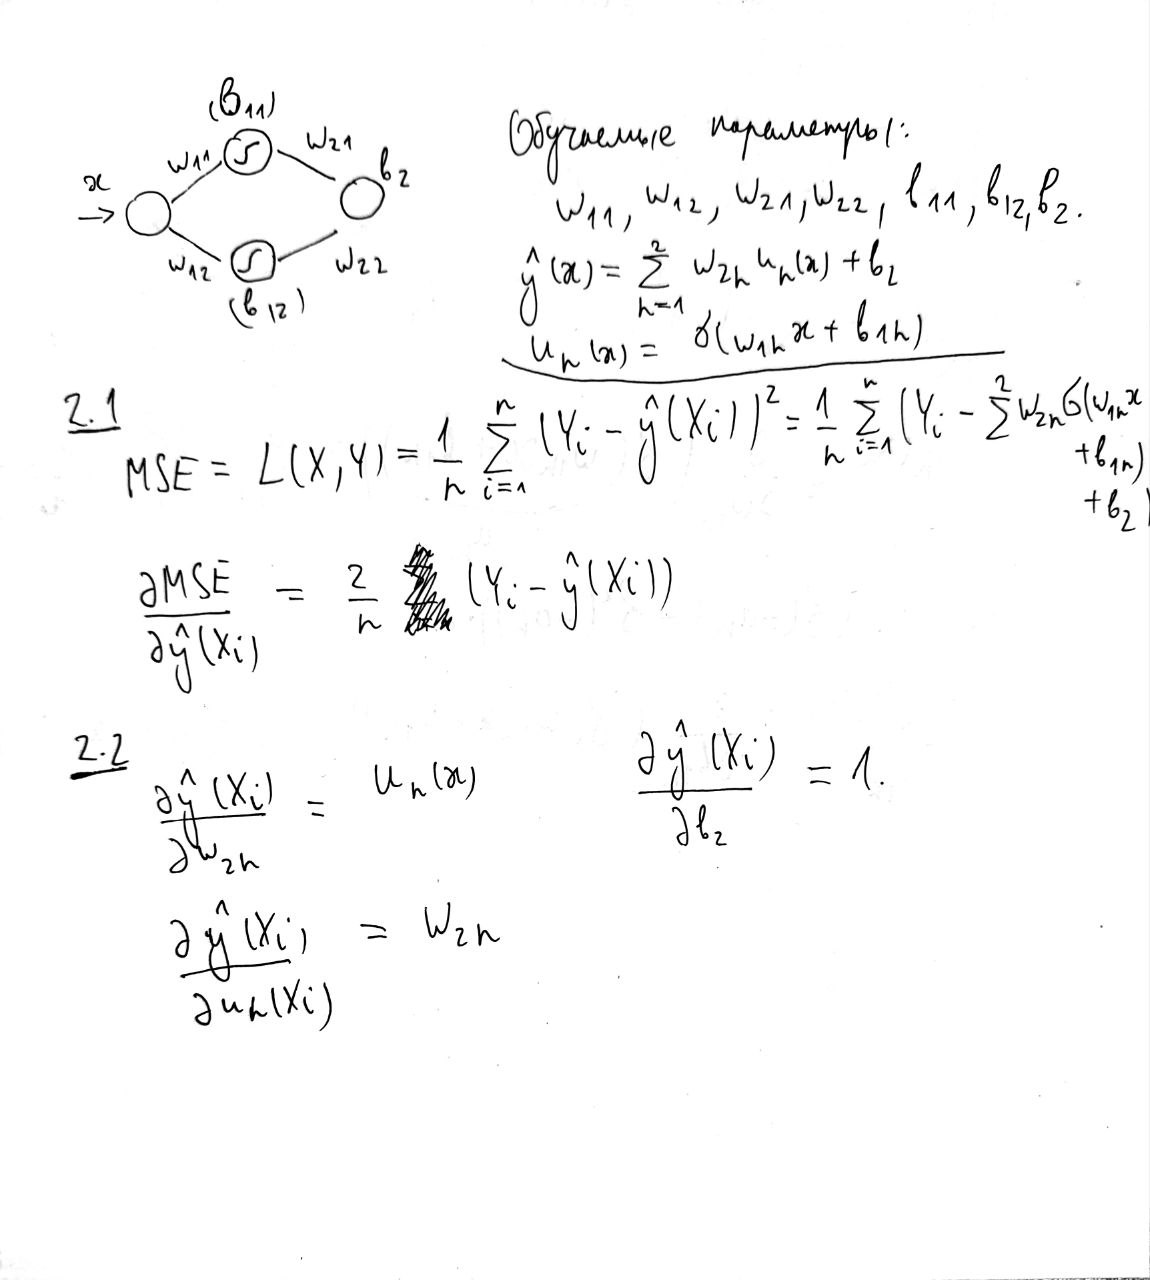 (b₁₁)
w₁₁ w₂₁ b₂
x
w₁₂ w₂₂
(b₁₂)
Обучаемые параметры:
w₁₁, w₁₂, w₂₁, w₂₂, b₁₁, b₁₂, b₂.
ŷ(x) = ∑_{h=1}^{2} w₂ₕ uₕ(x) + b₂
uₕ(x) = σ(w₁ₕ x + b₁ₕ)
2.1
MSE = L(X,Y) = 1/n ∑_{i=1}^{n} (Yᵢ - ŷ(Xᵢ))² = 1/n ∑_{i=1}^{n} (Yᵢ - ∑^{2} w₂ₕ σ(w₁ₕ x
+ b₁ₕ)
+ b₂)
∂MSE/∂ŷ(Xᵢ) = 2/n (Yᵢ - ŷ(Xᵢ))
2.2
∂ŷ(Xᵢ)/∂w₂ₕ = uₕ(x) ∂ŷ(Xᵢ)/∂b₂ = 1.
∂ŷ(Xᵢ)/∂uₕ(Xᵢ) = w₂ₕ